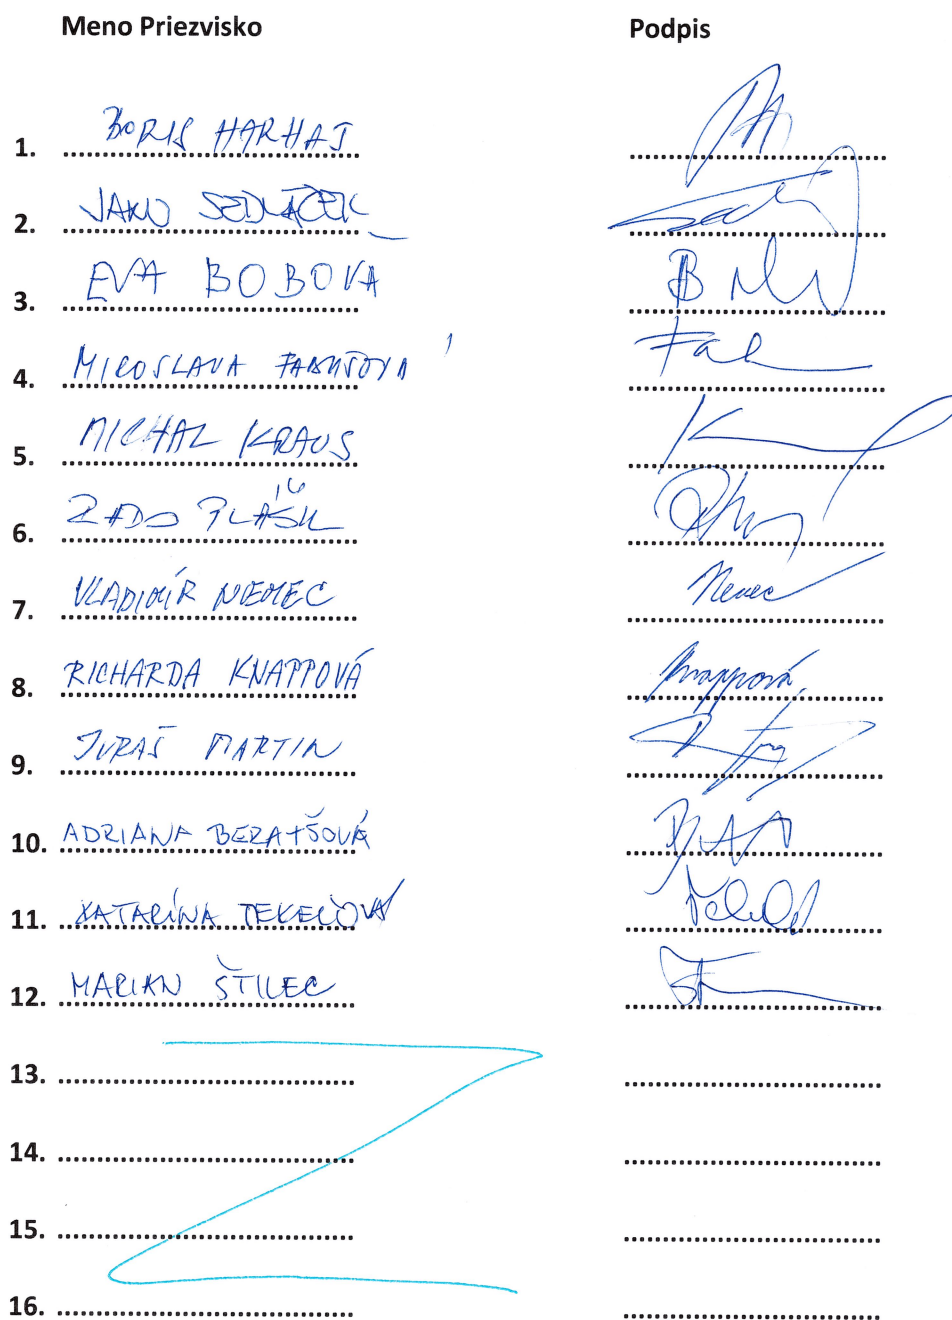 Meno Priezvisko Podpis
1. BORIS HARHAJ
2. JANO SEDLÁČEK
3. EVA BOBOVA
4. MIROSLAVA
5. MICHAL KRAUS
6. RADO PLÁŠIL
7. VLADIMÍR NEMEC Nemec
8. RICHARDA KNAPPOVÁ Knappová
9. JURAŠ MARTIN
10. ADRIANA
11. KATARÍNA TEKEĽOVÁ
12. MARIAN ŠTILEC
13.
14.
15.
16.